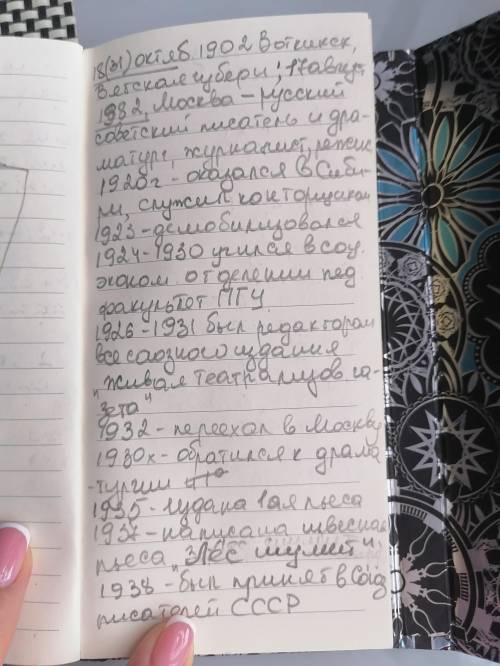 18(31) октяб. 1902 Воткинск,
Вятская губерн; 17 август
1982, Москва - русский
советский писатель и дра-
матург, журналист, режис
1920г - оказался в Сиби-
ри, служил конторщиком
1923 - демобилизовался
1924 - 1930 учился в соц.
эконом. отделении пед
факультет ПГУ.
1926 - 1931 был редактором
всесоюзного издания
"Живая театрализов га-
зета"
1932 - переехал в Москву
1930х - обратился к драма
-тургии
1935 - издана 1ая пьеса
1937 - написана известная
пьеса "Лес шумит"
1938 - был принят в Союз
писателей СССР